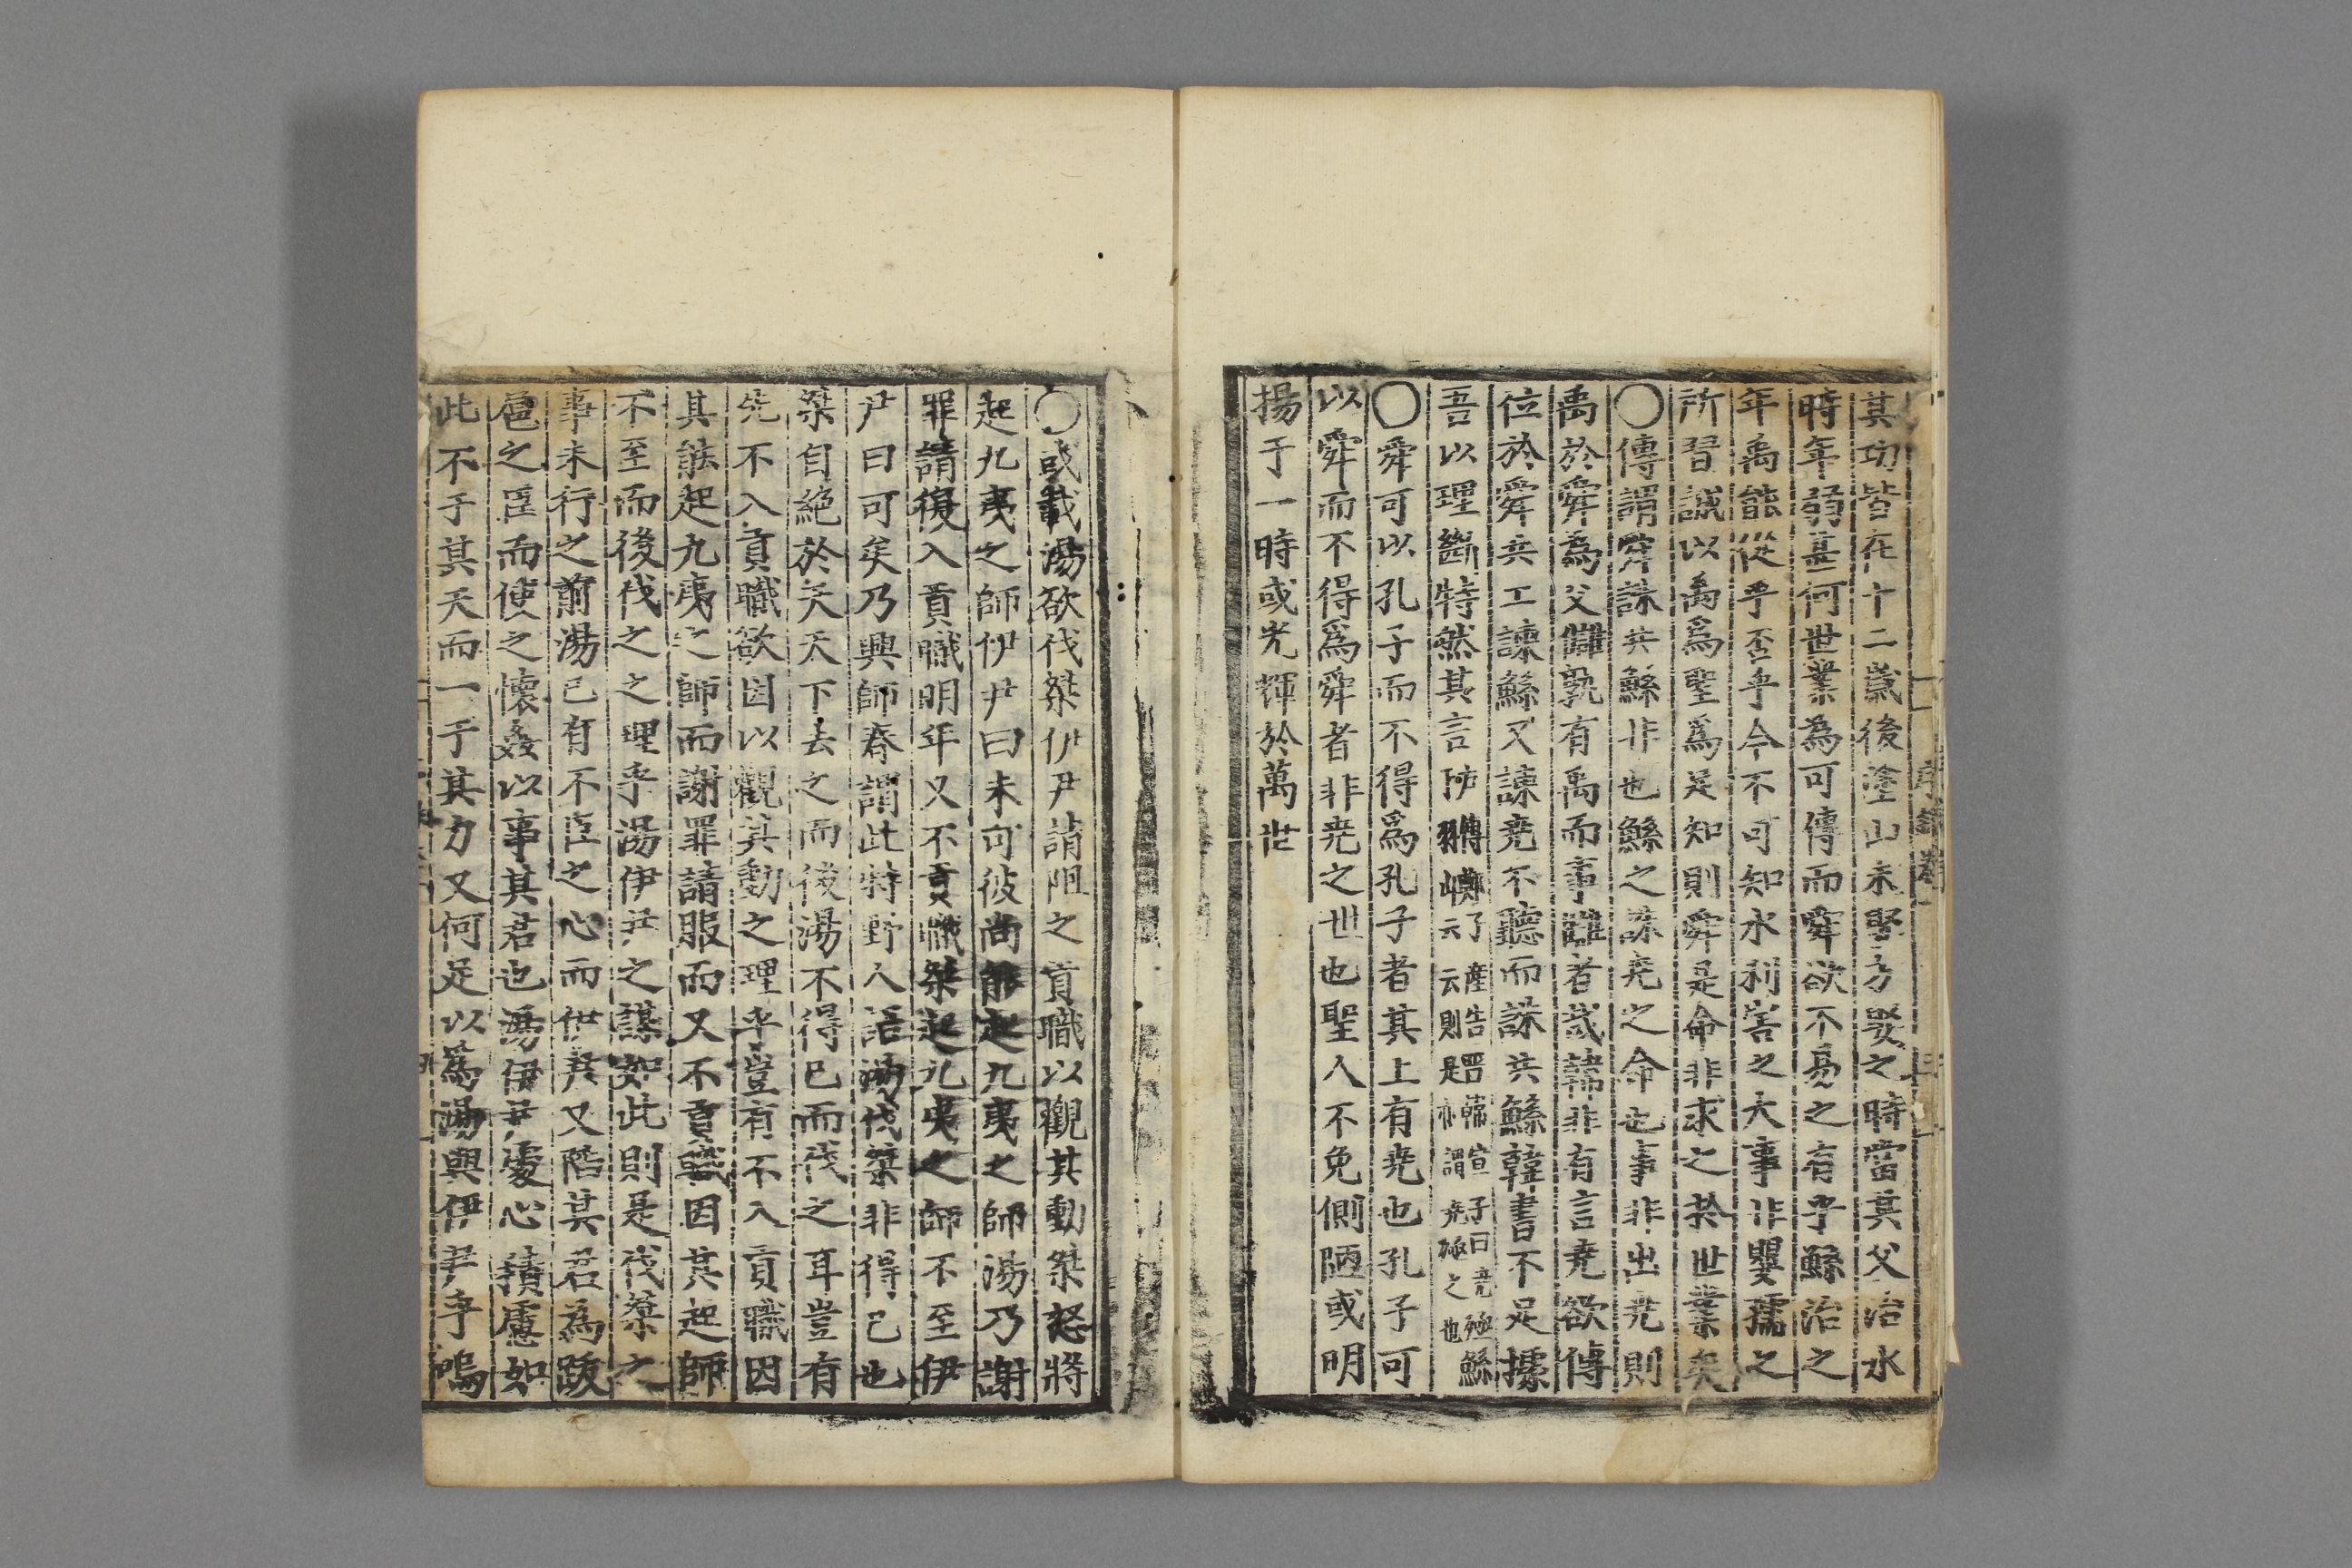 其功皆在十二歲後塗山未娶方娶之時當其父治水
時年弱甚何世業為可傳而舜欲不易之有乎鯀治之
年禹能從乎否乎今不可知水利害之大事非嬰孺之
所習誠以禹爲聖爲足知則舜是命非求之於世業矣
〇傳謂舜誅共鯀非也鯀之誅堯之命也事非出堯則
禹於舜爲父讎孰有禹而事讎者哉韓非有言堯欲傳
位於舜共工諫鯀又諫堯不聽而誅共鯀韓書不足據
吾以理斷特然其言
鄭子產告韓宣子曰堯殛鯀
云云則是亦謂堯殛之也
〇舜可以孔子而不得爲孔子者其上有堯也孔子可
以舜而不得爲舜者非堯之世也聖人不免側陋或明
揚于一時或光輝於萬世
〇或載湯欲伐桀伊尹請阻之貢職以觀其動桀怒將
起九夷之師伊尹曰未可彼尚能起九夷之師湯乃謝
罪請復入貢職明年又不貢職桀起九夷之師不至伊
尹曰可矣乃興師舂謂此特野人語湯伐桀非得已也
桀自絕於天天下去之而後湯不得已而伐之耳豈有
先不入貢職欲因以觀其動之理乎豈有不入貢職因
其能起九夷之師而謝罪請服而又不貢職因其起師
不至而後伐之之理乎湯伊尹之謀如此則是伐桀之
事未行之前湯已有不臣之心而伊尹又階其君為跋
扈之臣而使之懷姦以事其君也湯伊尹處心積慮如
此不于其天而一于其力又何足以爲湯與伊尹乎嗚